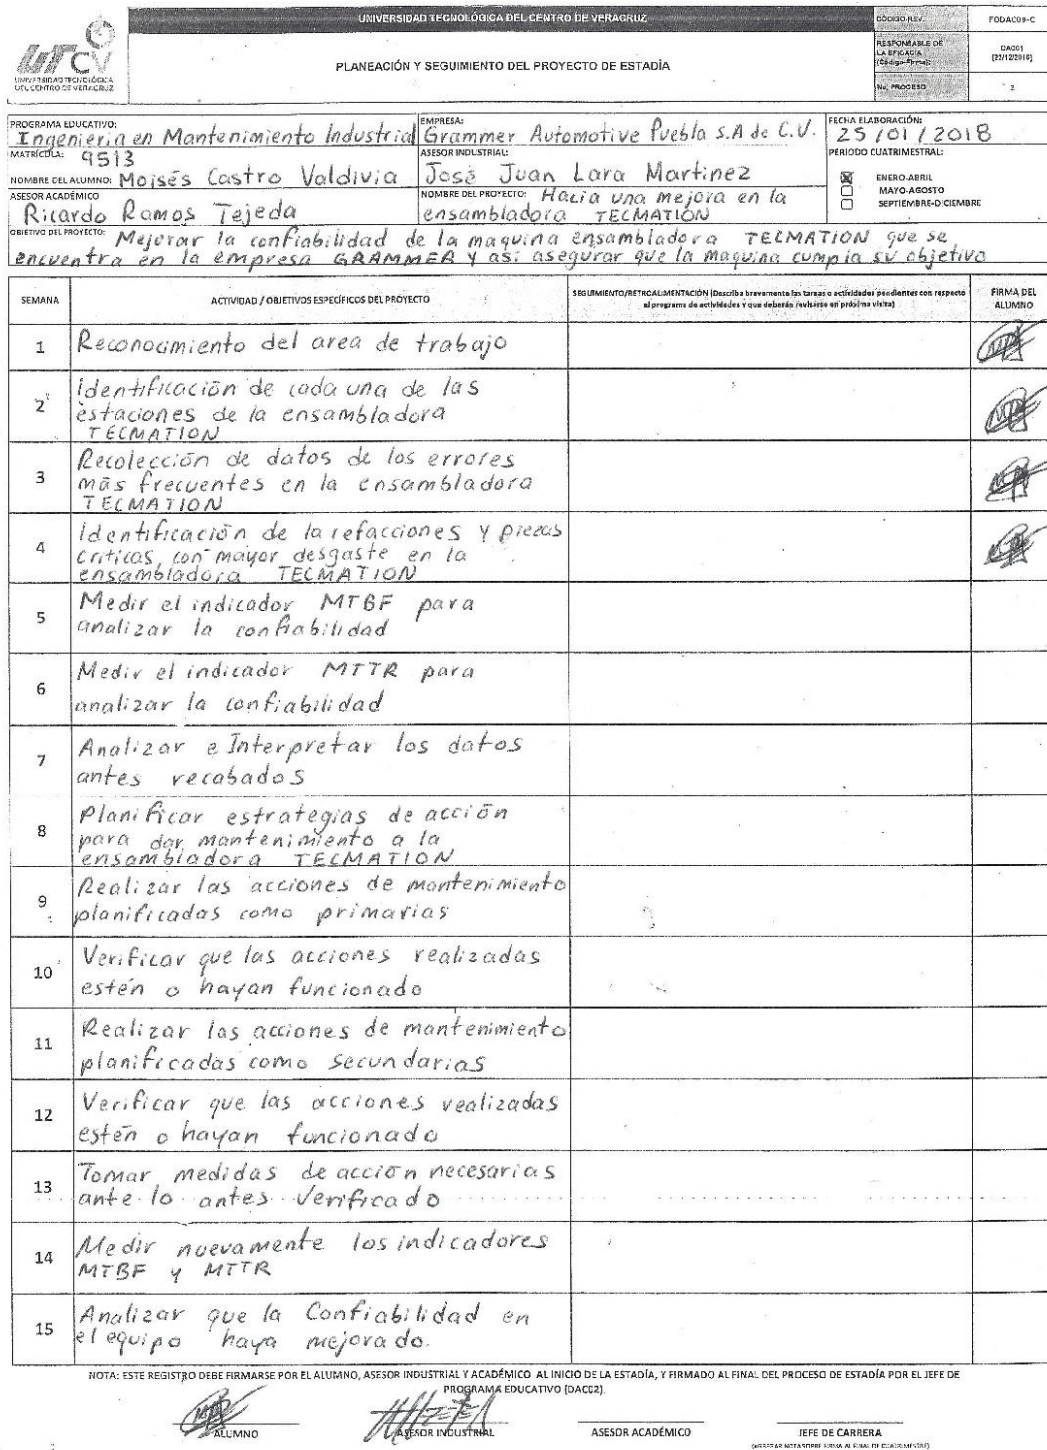 UNIVERSIDAD TECNOLÓGICA DEL CENTRO DE VERACRUZ
UTCV
UNIVERSIDAD TECNOLÓGICA
DEL CENTRO DE VERACRUZ
PLANEACIÓN Y SEGUIMIENTO DEL PROYECTO DE ESTADÍA
CÓDIGO-REV. FODAC09-C
RESPONSABLE DE
LA EFICACIA
(Código-Firma): DAC01
[22/12/2016]
No. PROCESO 2
PROGRAMA EDUCATIVO:
Ingenieria en Mantenimiento Industrial
EMPRESA:
Grammer Automotive Puebla S.A de C.V.
FECHA ELABORACIÓN:
25/01/2018
MATRÍCULA: 9513
NOMBRE DEL ALUMNO: Moisés Castro Valdivia
ASESOR INDUSTRIAL:
José Juan Lara Martinez
PERIODO CUATRIMESTRAL:
ENERO-ABRIL
MAYO-AGOSTO
SEPTIEMBRE-DICIEMBRE
ASESOR ACADÉMICO
Ricardo Ramos Tejeda
NOMBRE DEL PROYECTO: Hacia una mejora en la
ensambladora TECMATION
OBJETIVO DEL PROYECTO: Mejorar la confiabilidad de la maquina ensambladora TECMATION que se
encuentra en la empresa GRAMMER y asi asegurar que la maquina cumpla su objetivo
SEMANA
ACTIVIDAD / OBJETIVOS ESPECÍFICOS DEL PROYECTO
SEGUIMIENTO/RETROALIMENTACIÓN (Describa brevemente las tareas o actividades pendientes con respecto
al programa de actividades y que deberán revisarse en próxima visita)
FIRMA DEL
ALUMNO
1 Reconocimiento del area de trabajo
2 Identificación de cada una de las
estaciones de la ensambladora
TECMATION
3 Recolección de datos de los errores
más frecuentes en la ensambladora
TECMATION
4 Identificación de la refacciones y piezas
criticas, con mayor desgaste en la
ensambladora TECMATION
5 Medir el indicador MTBF para
analizar la confiabilidad
6 Medir el indicador MTTR para
analizar la confiabilidad
7 Analizar e Interpretar los datos
antes recabados
8 Planificar estrategias de acción
para dar mantenimiento a la
ensambladora TECMATION
9 Realizar las acciones de mantenimiento
planificadas como primarias
10 Verificar que las acciones realizadas
estén o hayan funcionado
11 Realizar las acciones de mantenimiento
planificadas como secundarias
12 Verificar que las acciones realizadas
estén o hayan funcionado
13 Tomar medidas de acción necesarias
ante lo antes Verificado
14 Medir nuevamente los indicadores
MTBF y MTTR
15 Analizar que la Confiabilidad en
el equipo haya mejorado.
NOTA: ESTE REGISTRO DEBE FIRMARSE POR EL ALUMNO, ASESOR INDUSTRIAL Y ACADÉMICO AL INICIO DE LA ESTADÍA, Y FIRMADO AL FINAL DEL PROCESO DE ESTADÍA POR EL JEFE DE
PROGRAMA EDUCATIVO (DAC02).
ALUMNO
ASESOR INDUSTRIAL
ASESOR ACADÉMICO
JEFE DE CARRERA